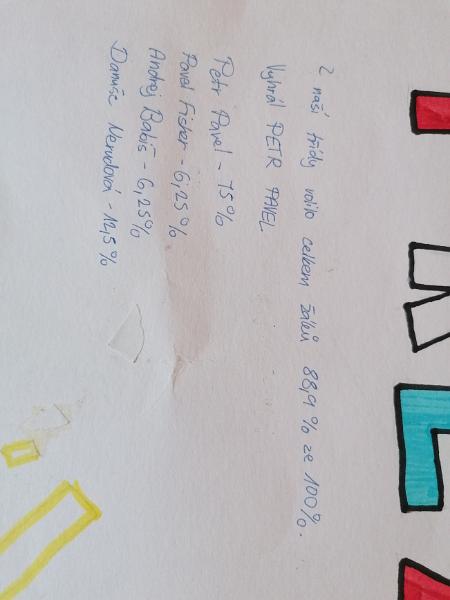 Z naší třídy volilo celkem žáků 88,9 % ze 100%.
Vyhrál PETR PAVEL
Petr Pavel - 75%
Pavel Fischer - 6,25%
Andrej Babiš - 6,25%
Danuše Nerudová - 12,5%